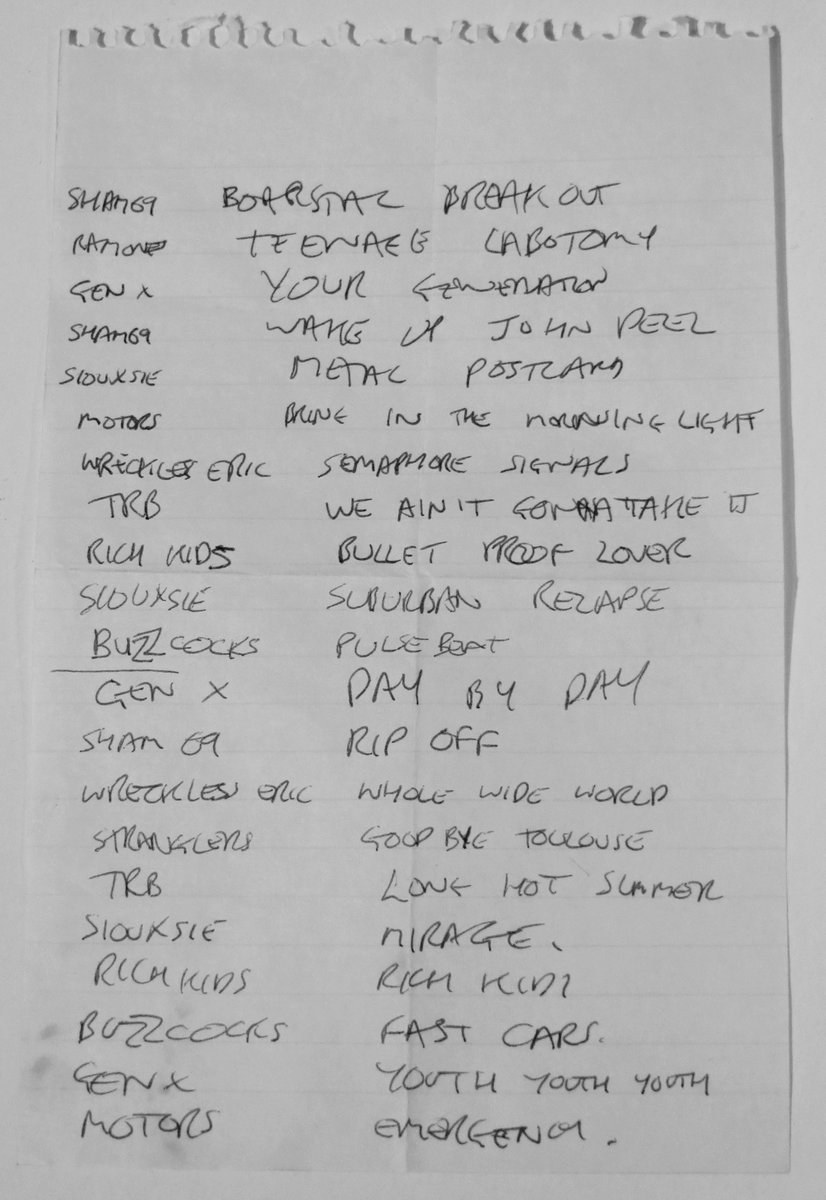 SHAM69 BOARSTAL BREAK OUT
RAMONES TEENAGE LABOTOMY
GEN X YOUR GENERATION
SHAM69 WAKE UP JOHN PEEL
SIOUXSIE METAL POSTCARD
MOTORS BRING IN THE MORNING LIGHT
WRECKLES ERIC SEMAPHORE SIGNALS
TRB WE AIN'T GONNA TAKE IT
RICH KIDS BULLET PROOF LOVER
SIOUXSIE SUBURBAN RELAPSE
BUZZCOCKS PULSE BEAT
GEN X DAY BY DAY
SHAM 69 RIP OFF
WRECKLESS ERIC WHOLE WIDE WORLD
STRANGLERS GOODBYE TOULOUSE
TRB LONG HOT SUMMER
SIOUXSIE MIRAGE.
RICH KIDS RICH KIDS
BUZZCOCKS FAST CARS.
GEN X YOUTH YOUTH YOUTH
MOTORS EMERGENCY.